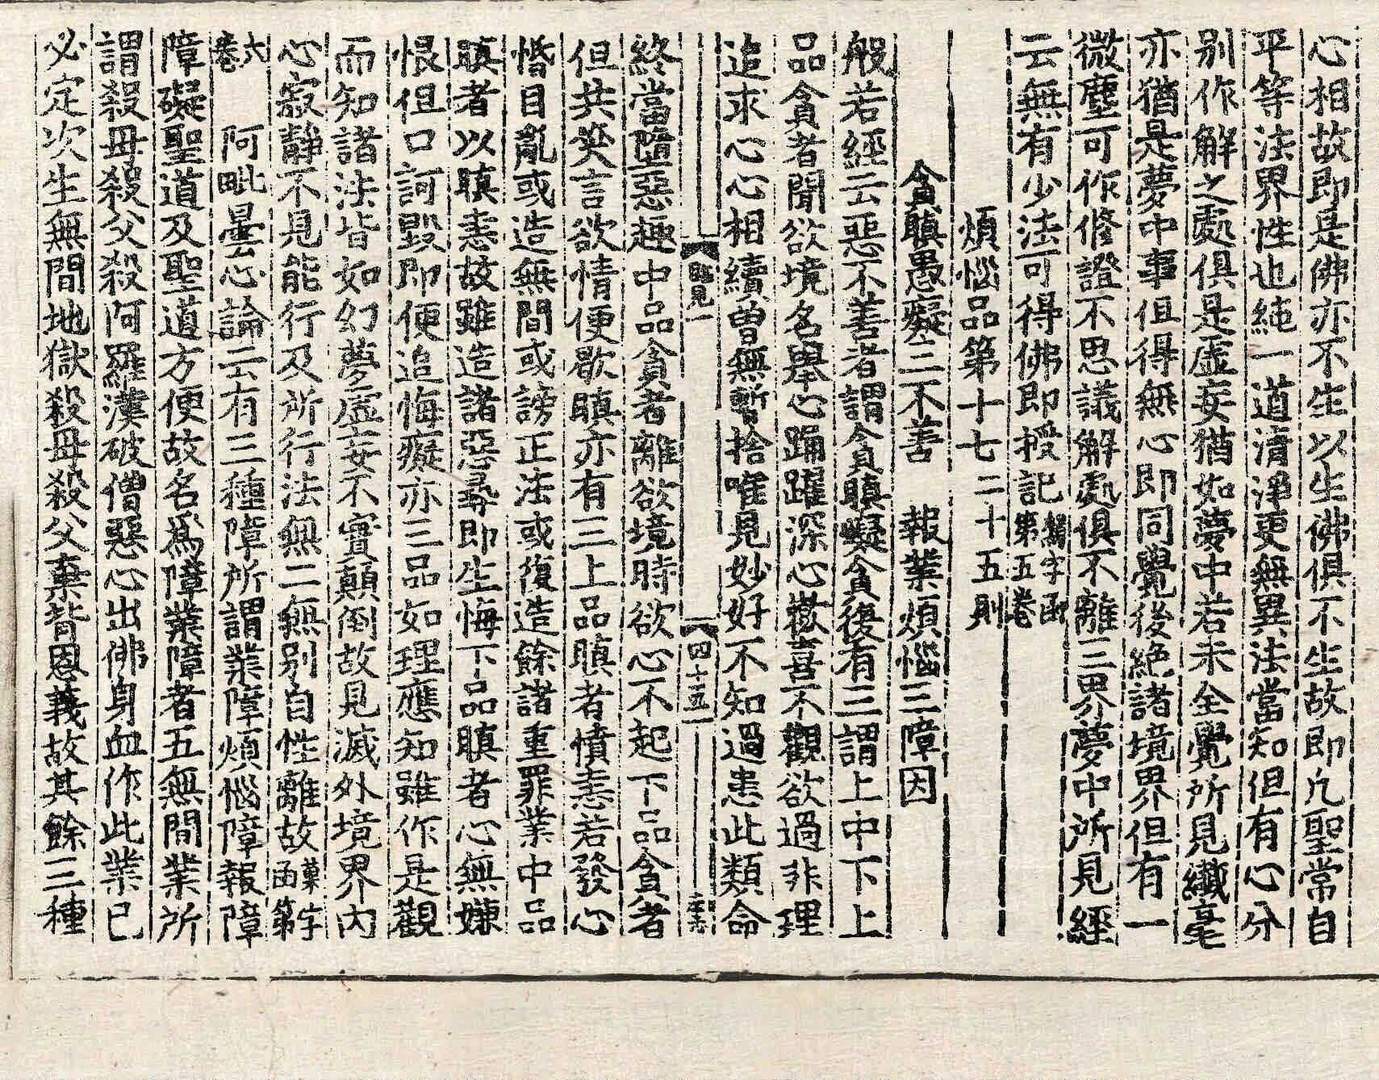 心相故即是佛亦不生以生佛俱不生故即凡聖常自
平等法界性也純一道清淨更無異法當知但有心分
别作解之處俱是虛妄猶如夢中若未全覺所見纖毫
亦猶是夢中事但得無心即同覺後絶諸境界但有一
微塵可作修證不思議解處俱不離三界夢中所見經
云無有少法可得佛即授記 第五卷
煩惱品第十七 二十五則
貪瞋愚癡三不善 報業煩惱三障因
般若經云惡不善者謂貪瞋癡貪復有三謂上中下上
品貪者聞欲境名舉心踊躍深心歡喜不觀欲過非理
追求心心相續曾無暫捨唯見妙好不知過患此類命
四十五
終當墮惡趣中品貪者離欲境時欲心不起下品貪者
但共笑言欲情便歇瞋亦有三上品瞋者憤恚若發心
惛目亂或造無間或謗正法或復造餘諸重罪業中品
瞋者以瞋恚故雖造諸惡尋即生悔下品瞋者心無嫌
恨但口訶毀即便追悔癡亦三品如理應知雖作是觀
而知諸法皆如幻夢虛妄不實顛倒故見滅外境界内
心寂靜不見能行及所行法無二無别自性離故 函第
六卷 阿毗曇心論云有三種障所謂業障煩惱障報障
障礙聖道及聖道方便故名爲障業障者五無間業所
謂殺母殺父殺阿羅漢破僧惡心出佛身血作此業已
必定次生無間地獄殺母殺父棄背恩義故其餘三種